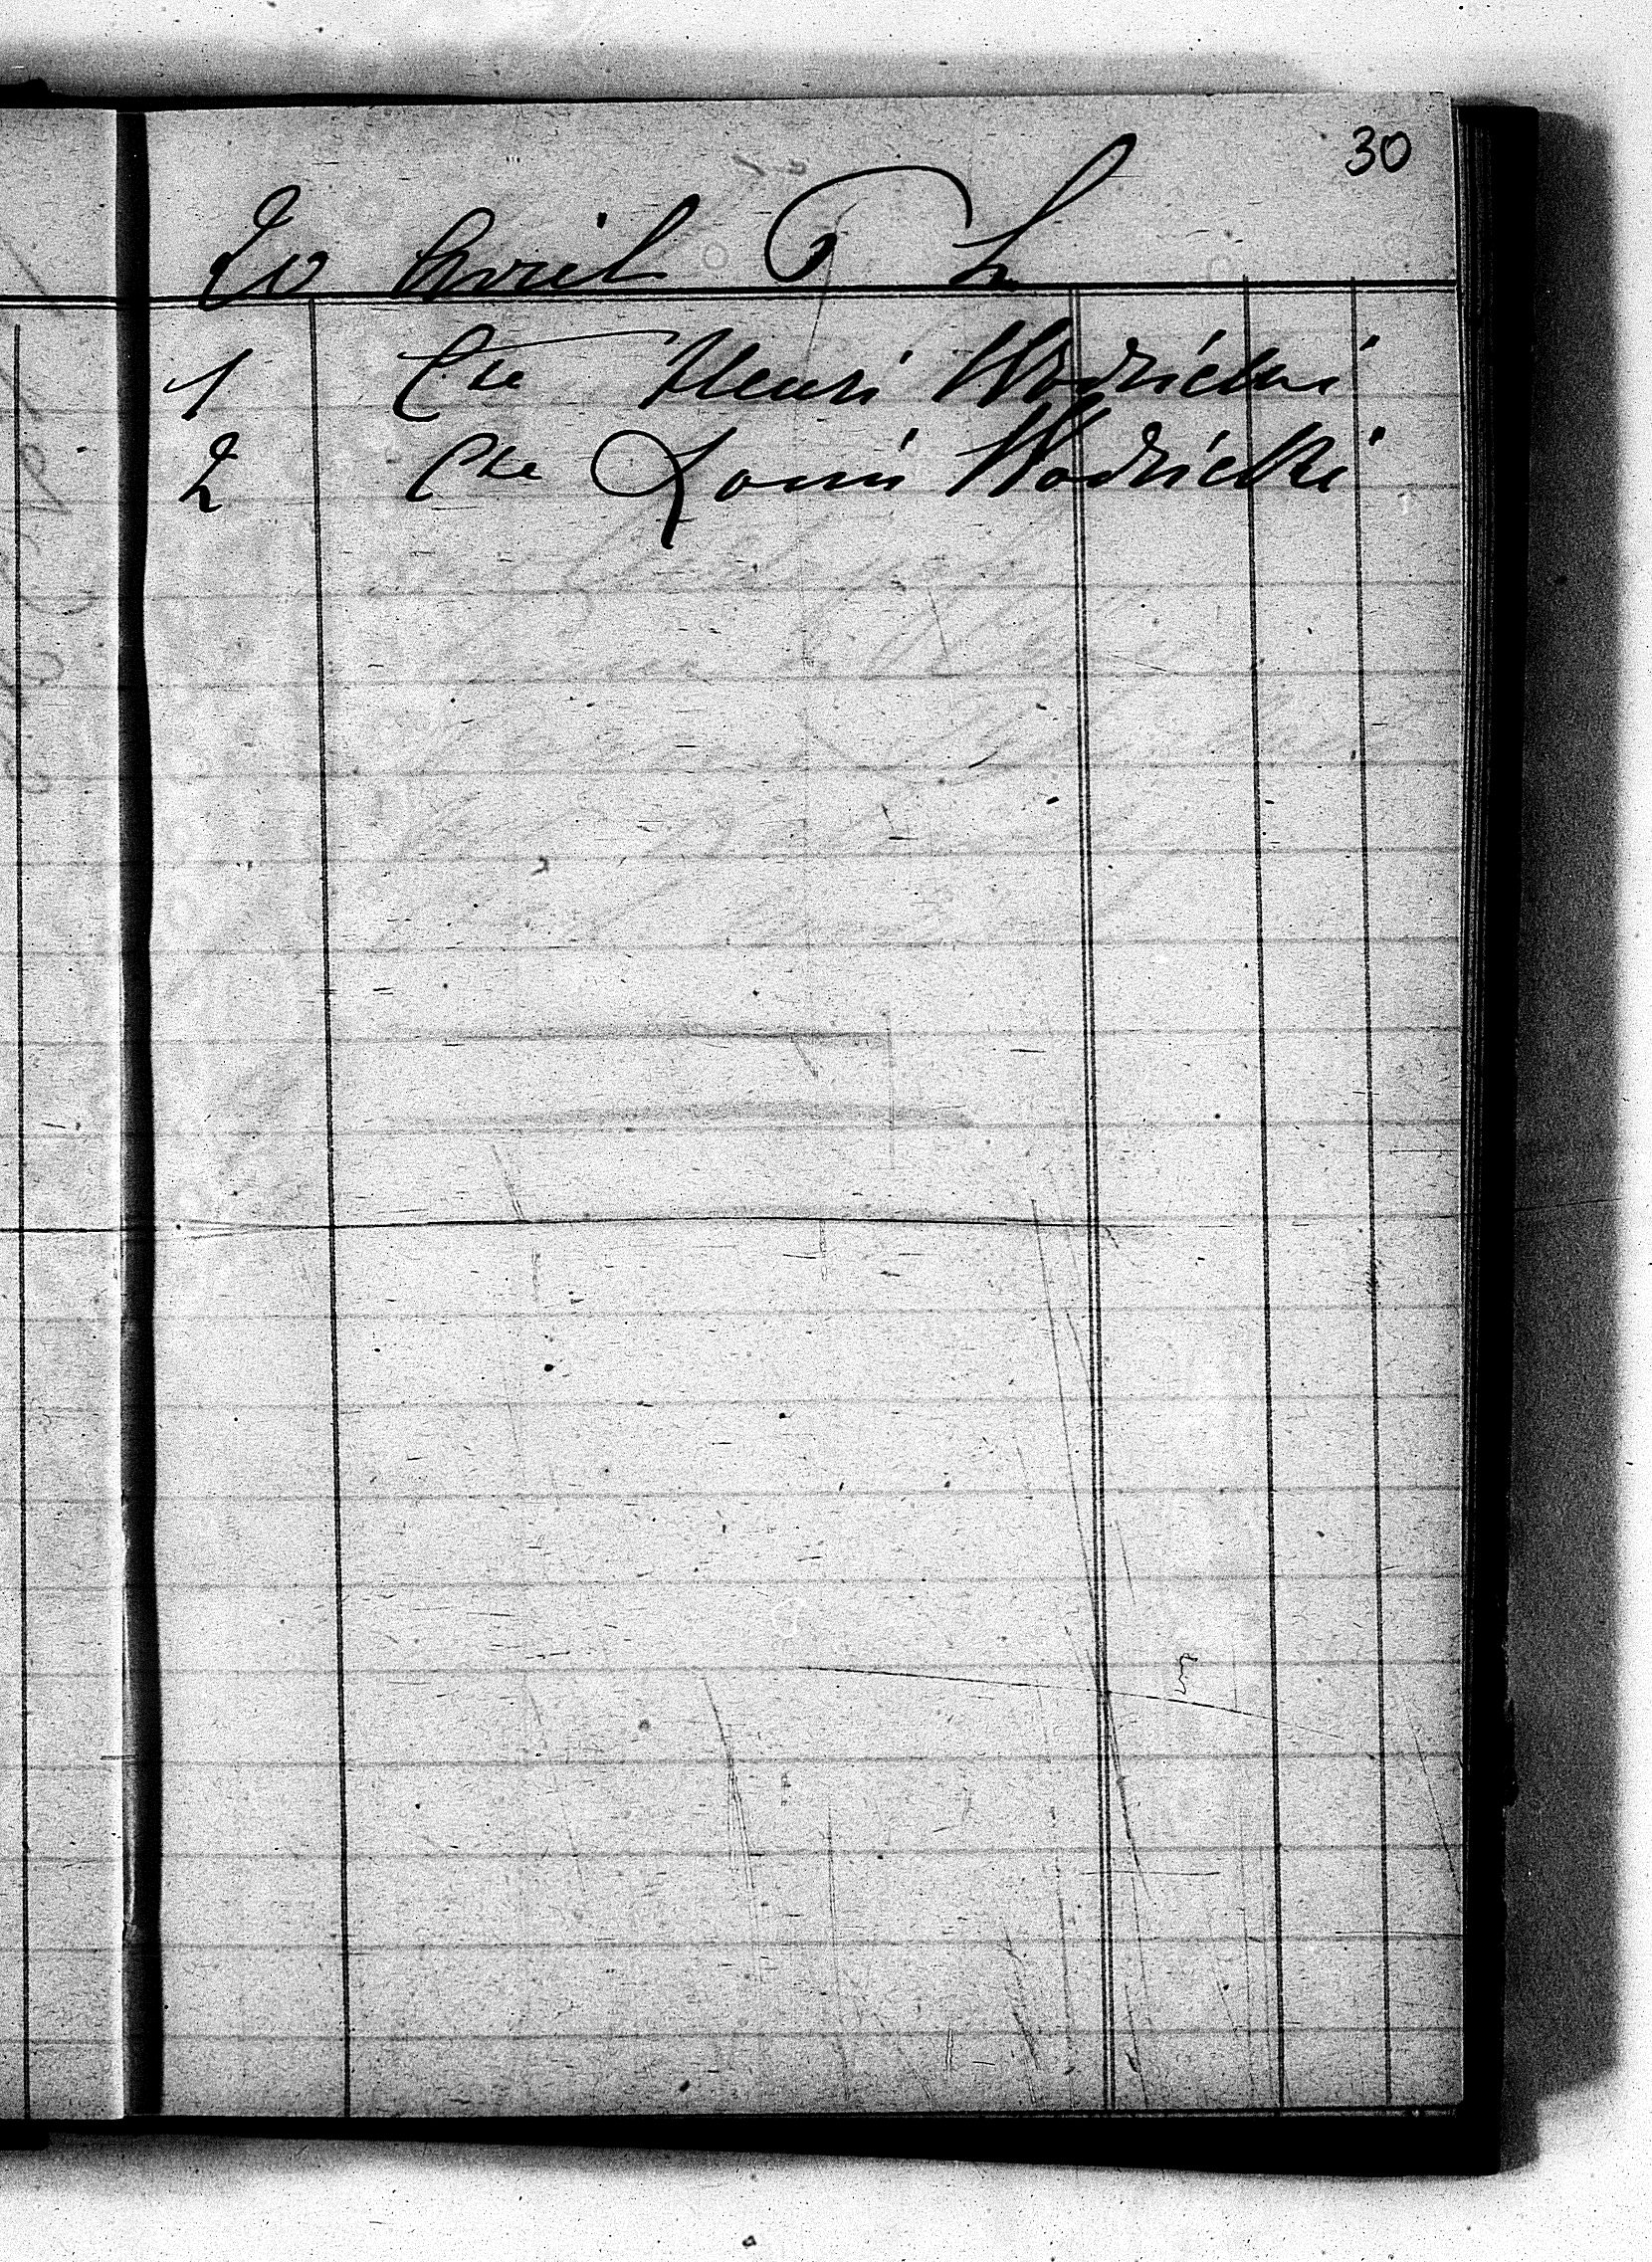 30
20 Avril
1 Cte Henri Wodzicki
2 Cte Louis Wodzicki